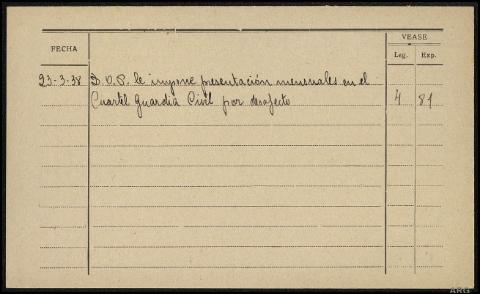 FECHA
VEASE
Leg. Exp.
23-3-38 D.O.P. le impone presentación mensuales en el
Cuartel Guardia Civil por desafecto 4 81